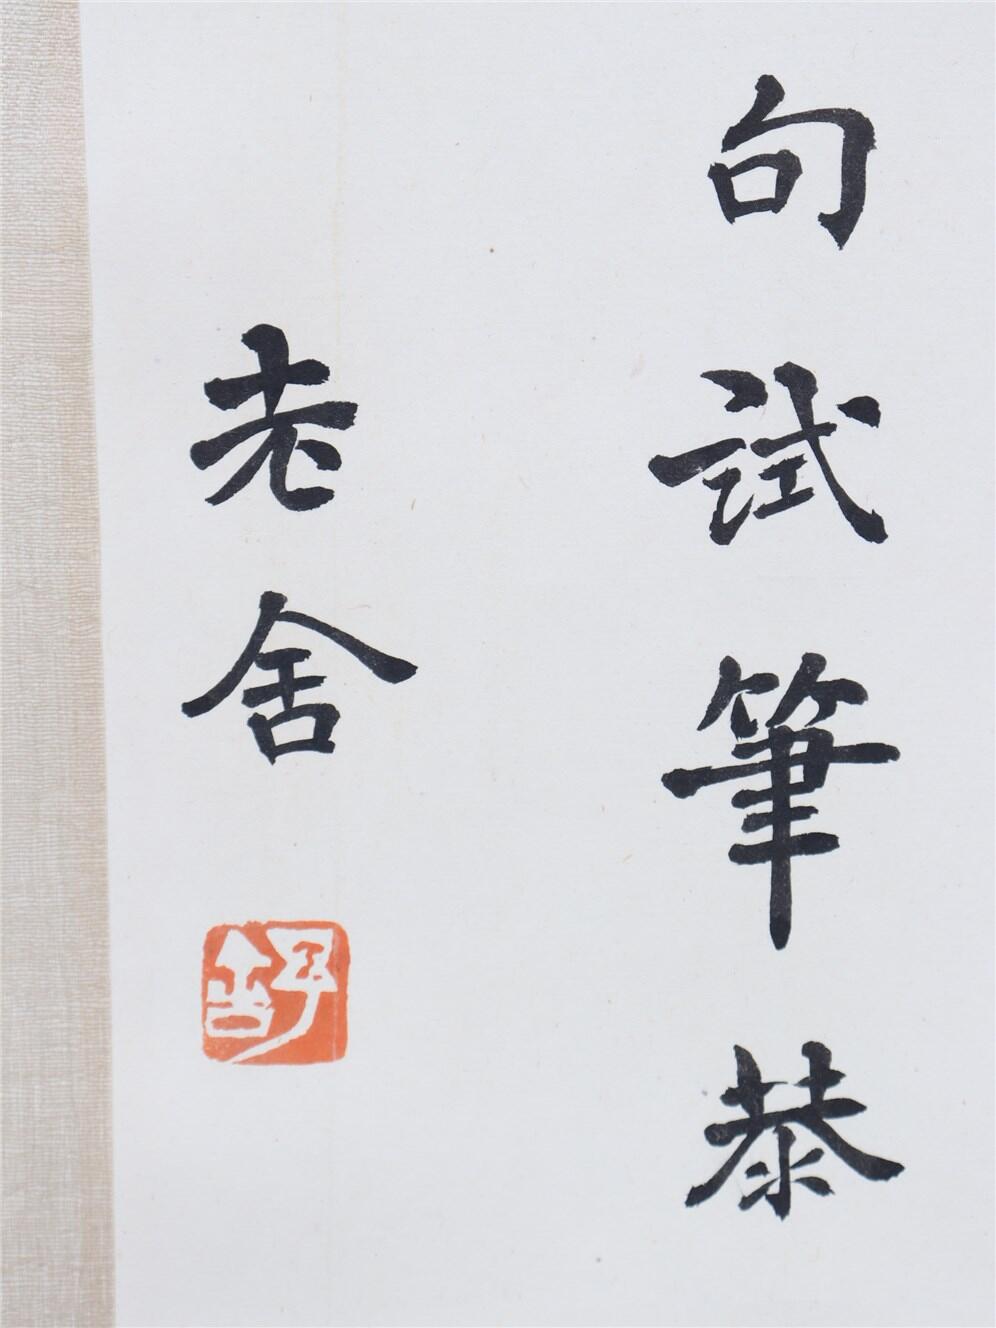 句試筆恭
老舍
舒